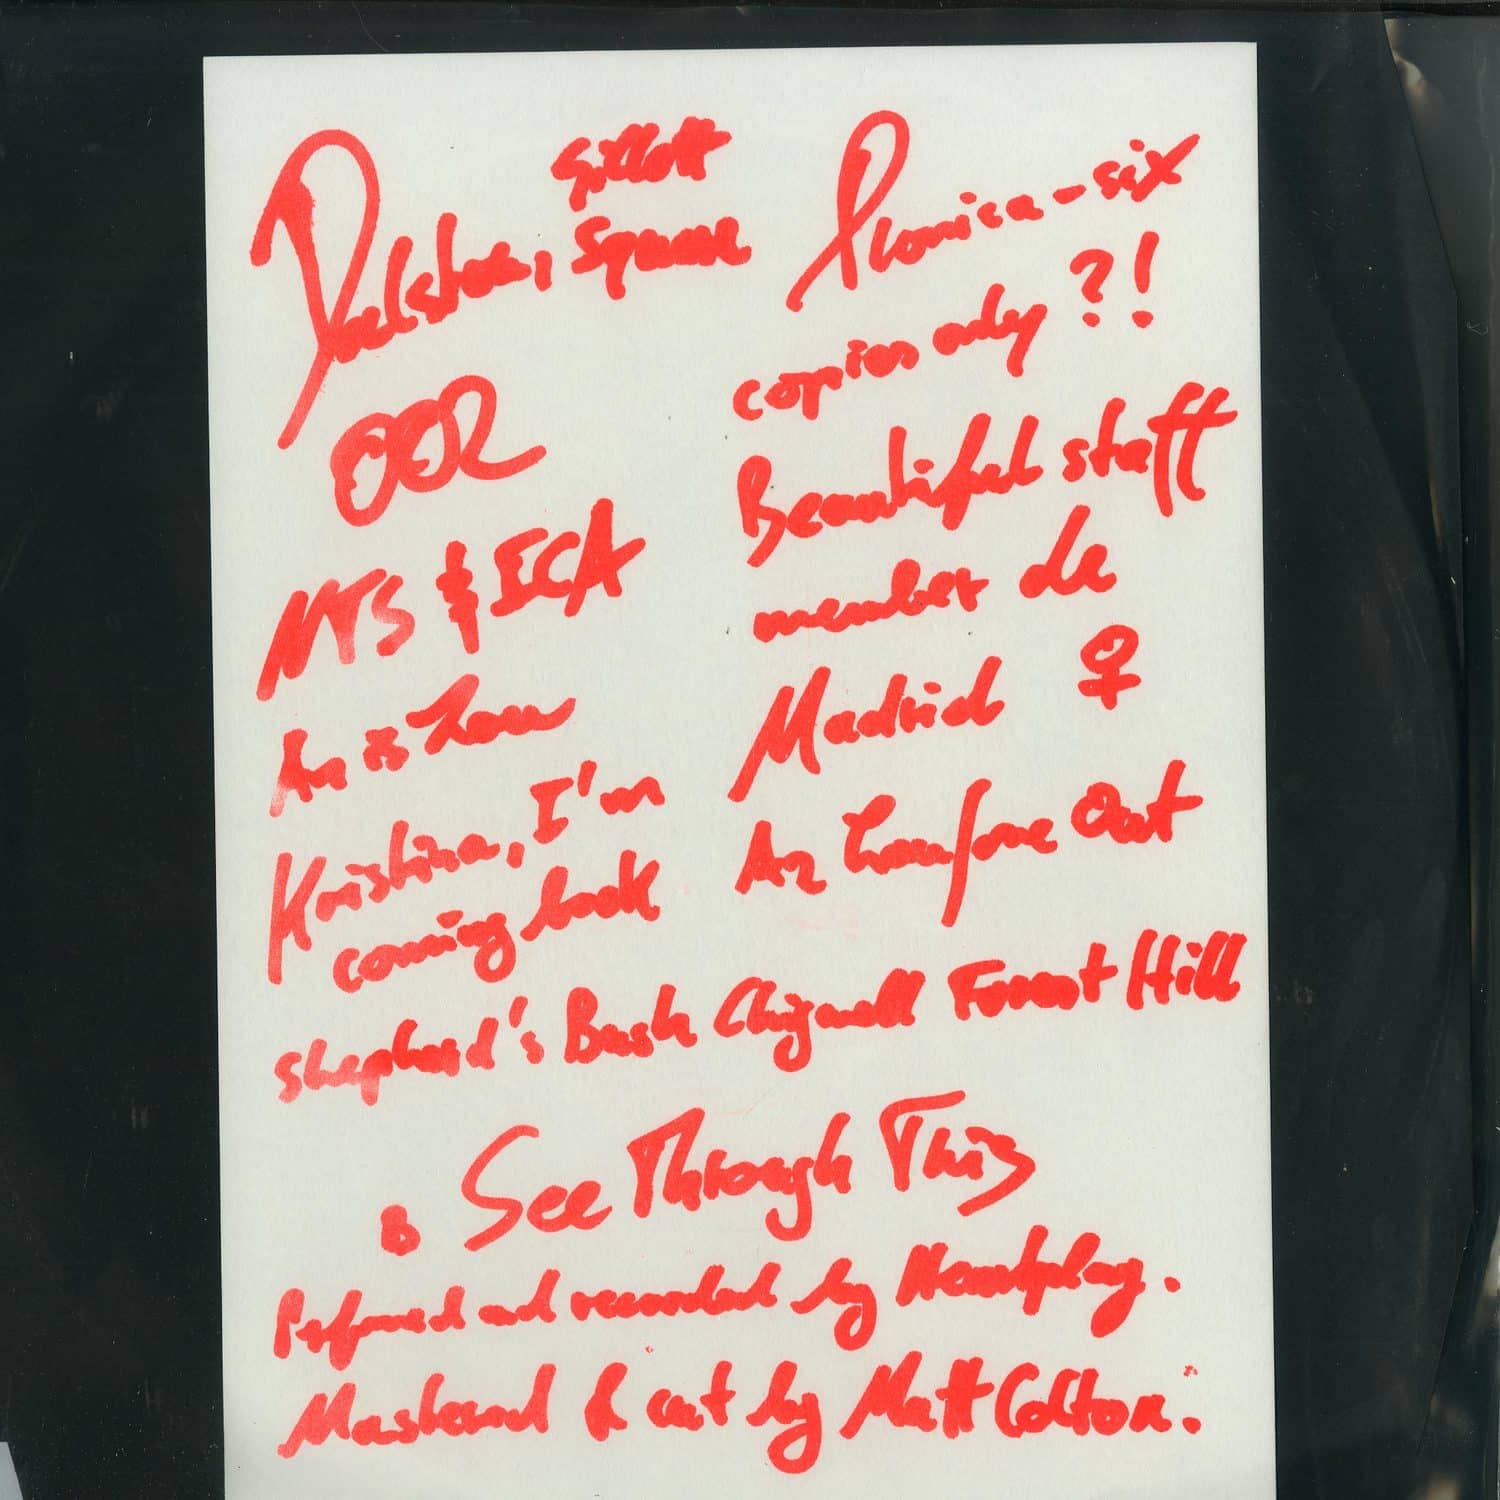 Dalston, Gillett Square
OOR
NTS & ICA
An is
Kristina, I'm
coming back
Phonica-six
copies only ?!
Beautiful staff
member de
Madrid ♀
Out
shepherd's Bush Chigwell Forest Hill
B See Through This
Performed and recorded by Moonplay.
Mastered & cut by Matt Colton.